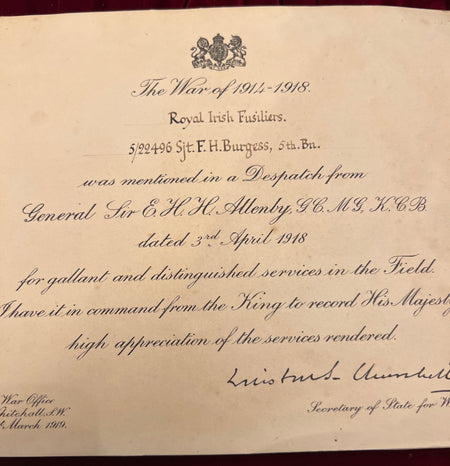 The War of 1914-1918.
Royal Irish Fusiliers.
5/22496 Sjt. F. H. Burgess, 5th. Bn.
was mentioned in a Despatch from
General Sir E. H. H. Allenby, G.C.M.G., K.C.B.
dated 3rd April 1918
for gallant and distinguished services in the Field.
I have it in command from the King to record His Majesty
high appreciation of the services rendered.
Winston S. Churchill
War Office
Whitehall, S.W.
Secretary of State for W
March 1919.